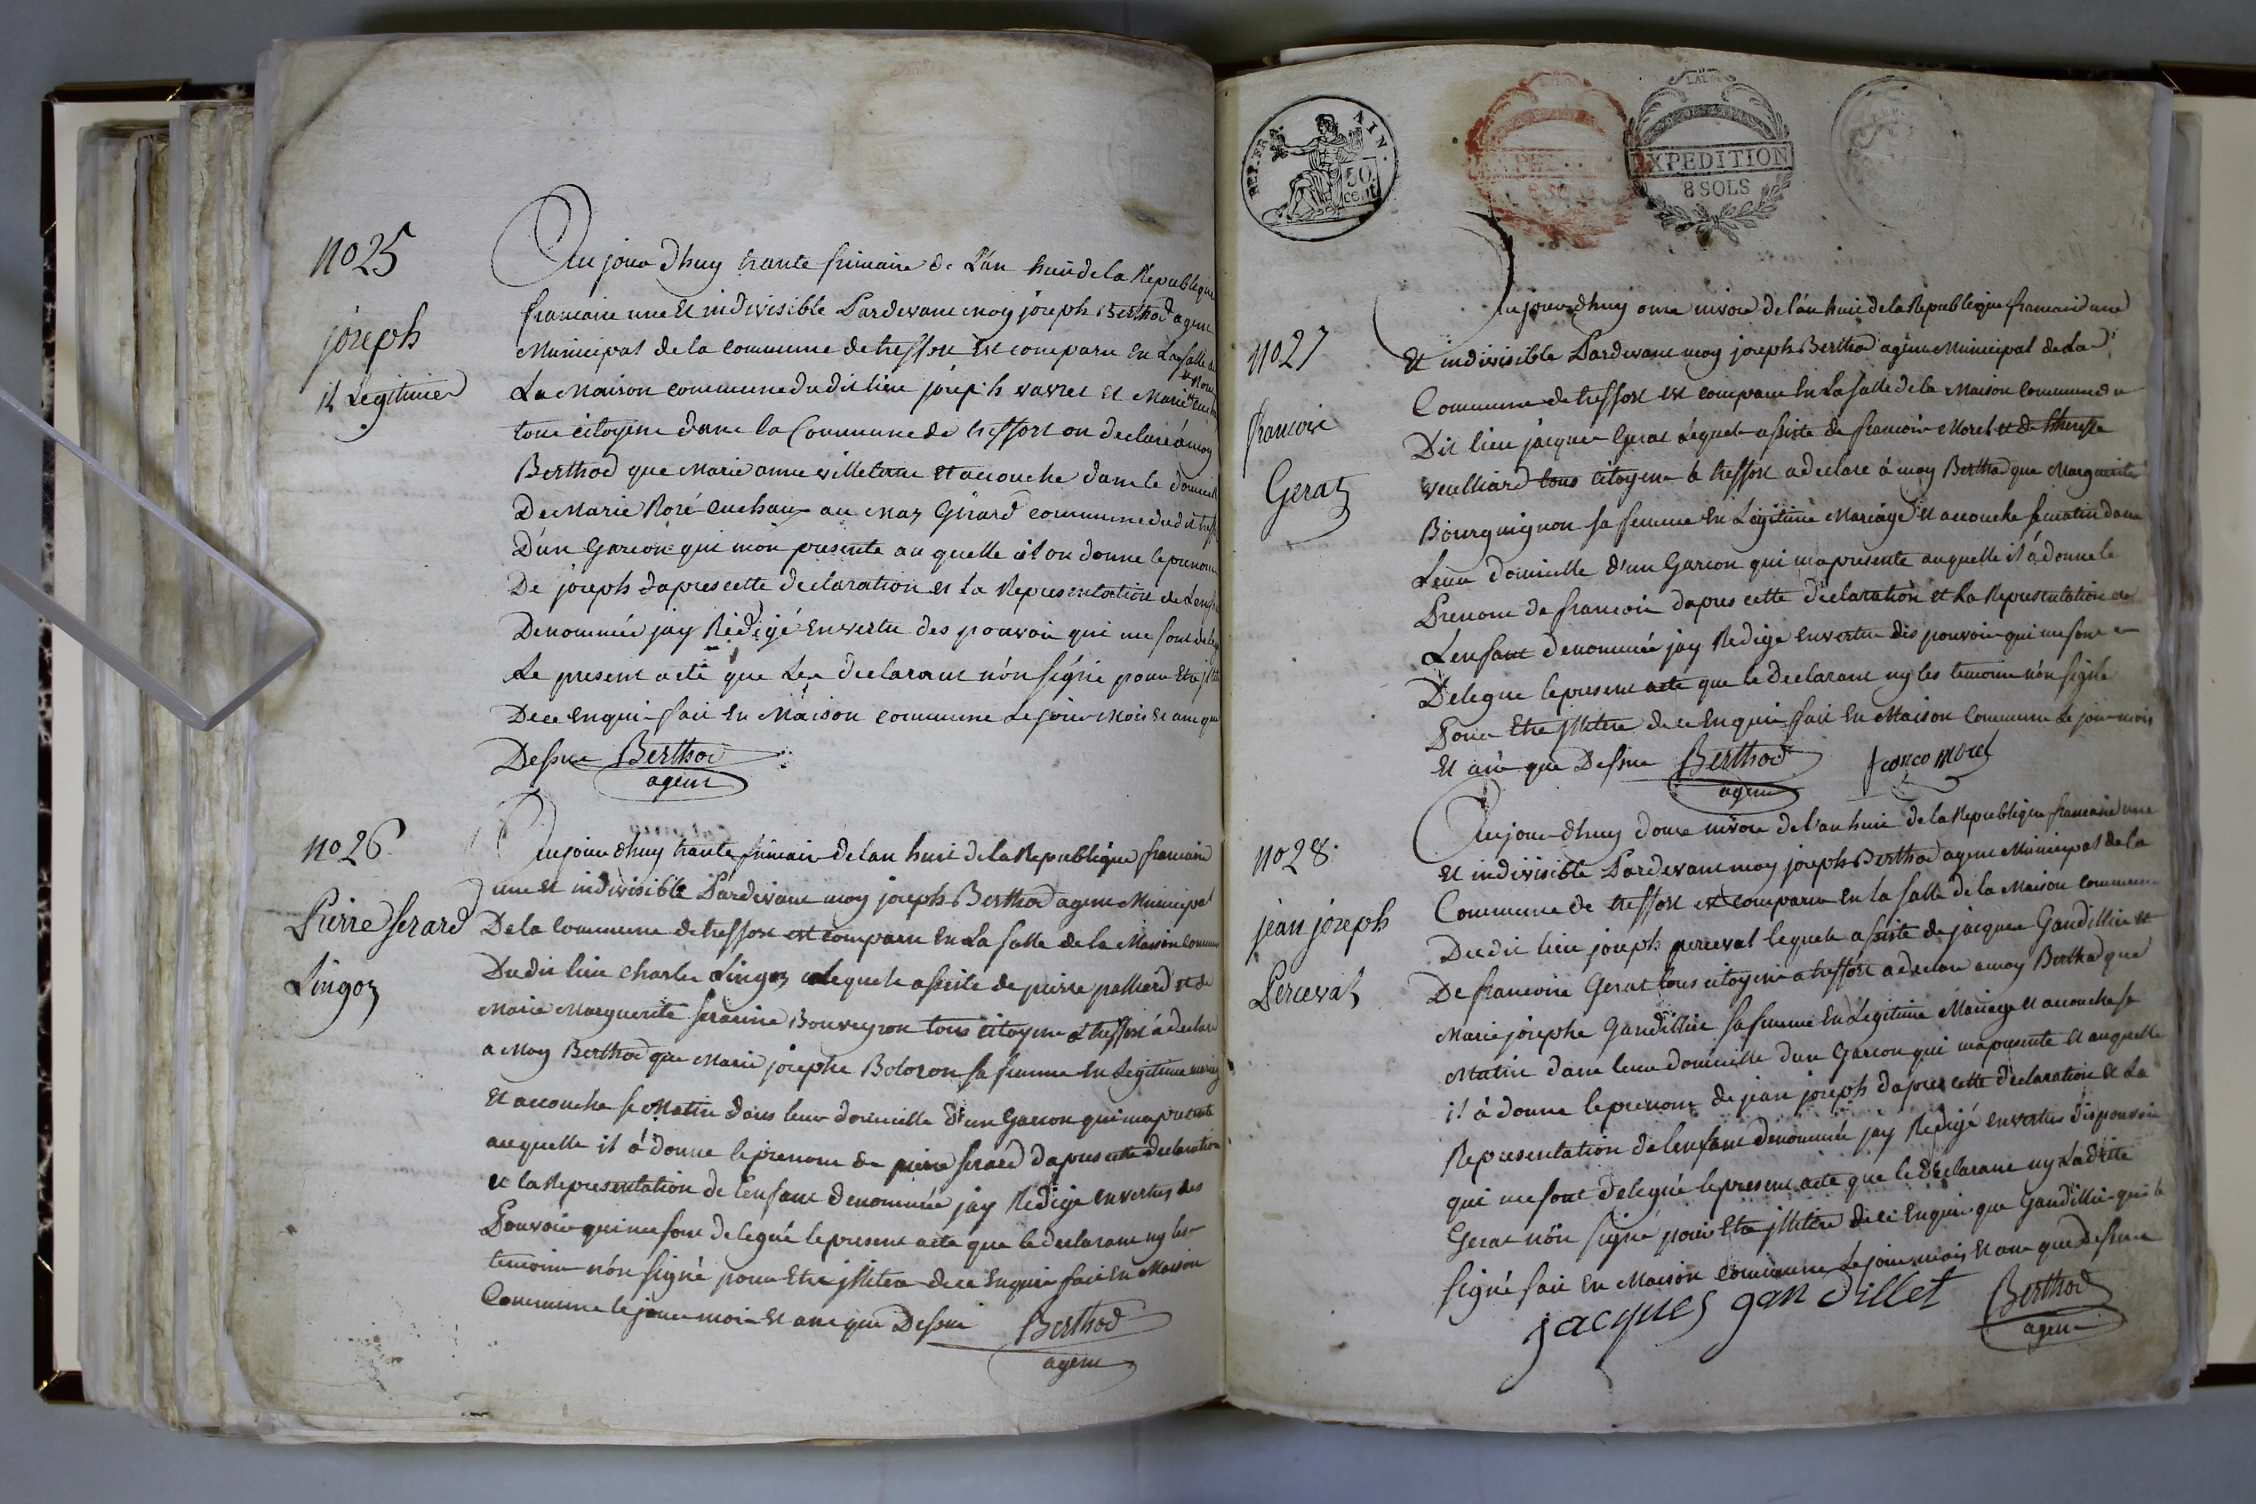 no 25
joseph
illegitimé
Aujourdhuy trante frimaire de L'an huit de la Republique
francaise une Et indivisible Pardevant moy joseph Berthod agent
Municipal de la commune de treffort Est comparu En La salle de
La Maison commune du dit lieu joseph vavret Et Marie Rose
tous citoyens dans la Commune de treffort on declaré à moy
Berthod que Marie anne villetane Et accouché dans le domicile
De Marie Rosé Cuchau au Maz Gérard commune du dit treffort
D'un Garcon qui mon presenté au quelle il on donné le prenom
De joseph dapres cette declaration et la Representation de Lenfant
Denommée jay Rédigé En vertu des pouvoir qui me sont delegué
Le present acté que Les declarant n'on signé pour Etre jllitere
De ce Enqui fait En Maison commune Le jour Mois Et ans que
Dessus Berthod
agent
no 26
Pierre ferard
Lingoz
Aujourdhuy trante frimaire de lan huit de la Republique francaise
une Et indivisible Pardevant moy joseph Berthod agent Municipal
De la commune de treffort est comparu En La salle de la Maison Commune
Du dit lieu Charle Lingoz lequel assisté de pierre palliard et de
Marie Marguerite ferarine Bouveyron tous citoyens à treffort à declaré
a Moy Berthod que Marie josephe Boloron sa femme En Legitime mariage
Et accouché se Matin dans leur domicille d'un Garcon qui ma presenté
au quelle il à donné le prenom de pierre ferard dapres cette declaration
et la Representation de lenfant denommée jay Redigé En vertus des
Pouvoir qui me sont delegué le present acte que le declarant ny les
temoins n'on signé pour Etre jlliteré de ce Enquis fait En Maison
Commune le jour mois Et ans que Dessus Berthod
agent
REP. FRA. AIN.
50 cent
EXPEDITION
8 SOLS
no 27
francois
Geraz
Aujourdhuy onze nivose de l'an huit de la Republique francaise une
Et indivisible Pardevant moy joseph Berthod agent Municipal de La
Commune de treffort Est comparu En La salle de la Maison Commune du
Dit lieu jacques Gerat lequel assisté de francois Morel et de therese
veulliard tous citoyens à treffort a declaré à moy Berthod que Marguerite
Bourguignon sa femme En Légitime Mariage Et accouché se matin dans
Leur domicille d'un Garcon qui ma presenté au quelle il à donné le
Prenom de francois dapres cette declaration et La Representation de
Lenfant denommée jay Redigé En vertu des pouvoir qui me sont
Delegué le present acte que le declarant ny les temoins n'on signé
Pour Etre jllitere de ce Enquis fait En Maison Commune Le jour mois
Et an que Dessus Berthod
agent
no 28
jean joseph
Perceval
Aujourdhuy douze nivose de l'an huit de la Republique francaise une
Et indivisible Pardevant moy joseph Berthod agent Municipal de la
Commune de treffort est comparu En la salle de la Maison commune
Du dit lieu joseph perceval lequel assisté de jacques Gandillier et
De francoise Gerat tous citoyens a treffort a declaré a moy Berthod que
Marie josephe Gandillier sa femme En Légitime Mariage Et accouché se
Matin dans leur domicille dun Garcon qui ma presenté Et au quelle
il à donné le prenom de jean joseph dapres cette declaration Et La
Representation de lenfant denommée jay Redigé En vertus des pouvoir
qui me sont delegué le present acte que le declarant ny Laditte
Gerat n'on signé pour Etre jllitere de ce Enquis que Gandillier qui à
signé fait En Maison Commune Le jour mois Et an que Dessus
jacques gandillet Berthod
agent